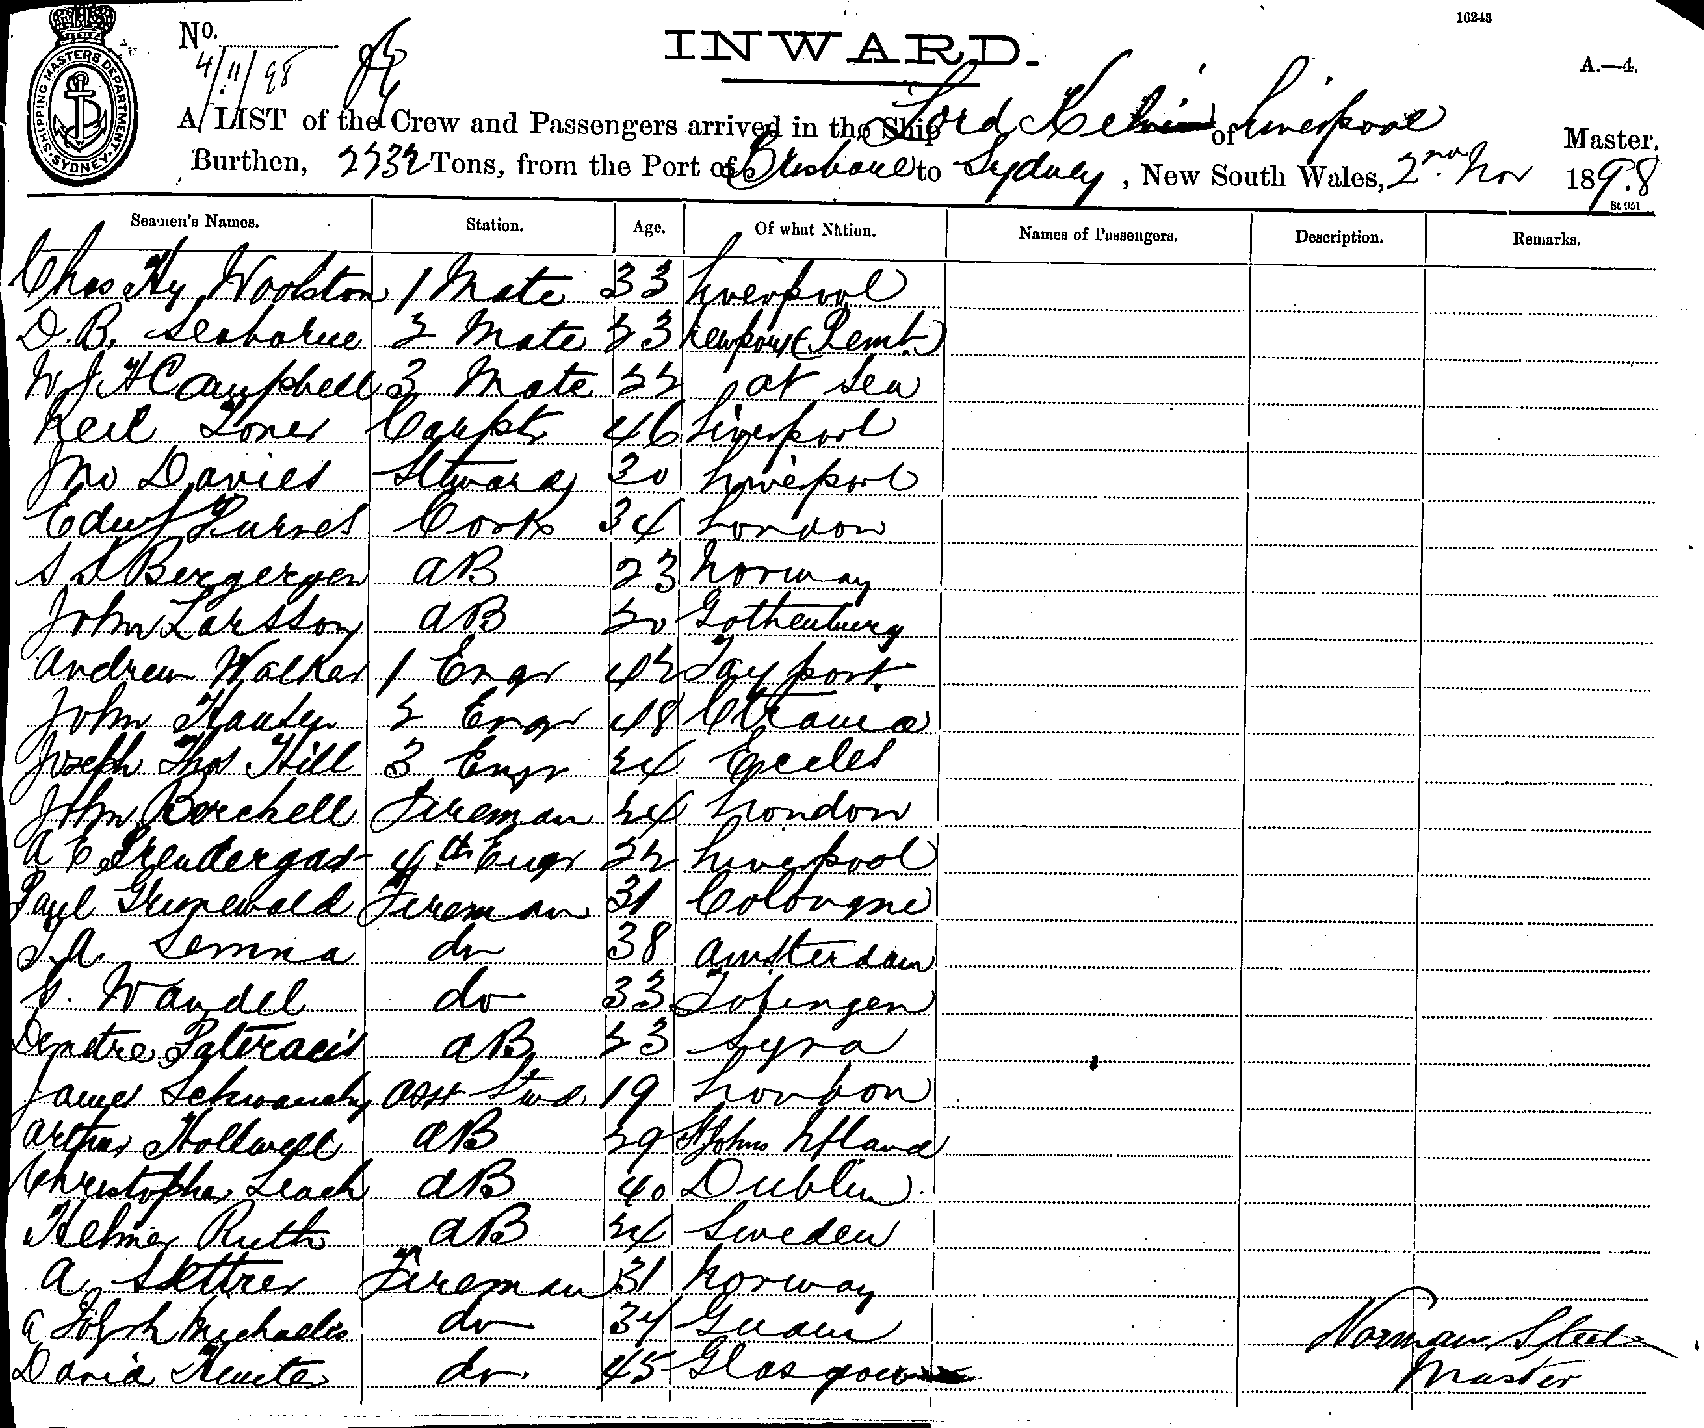 16248
No. 4/11/98
INWARD.
A.—4.
SHIPPING MASTERS DEPARTMENT. SYDNEY
A LIST of the Crew and Passengers arrived in the Ship Lord Kelvin of Liverpool Master.
Burthen, 2732 Tons, from the Port of Brisbane to Sydney, New South Wales, 2nd Nov 1898
St 951
Seamen's Names. Station. Age. Of what Nation. Names of Passengers. Description. Remarks.
Chas Hy Woolston 1 Mate 33 Liverpool
D. B. Seaborne 2 Mate 23 Newport
W J H Campbell 3 Mate 22 at sea
Neil Toner Carptr 46 Liverpool
Jno Davies Steward 30 Liverpool
Edwd Purves Cook 34 London
S S Bergersen AB 23 Norway
John Larsson AB 20 Gothenburg
Andrew Walker 1 Engr 42 Tayport
John Hansen 2 Engr 48
Joseph Thos Hill 3 Engr 24 Eccles
John Borchell Fireman 24 London
A E Prendergast 4th Engr 22 Liverpool
Paul Grunewald Fireman 31 Cologne
Lemna do 38 Amsterdam
G. Wandel do 33 Tobingen
Demetre AB 23 Syra
James asst Stwd. 19 London
Arthur Hollwell AB 29 St Johns Nfland
Christopher Leach AB 40 Dublin
Helmer Ruth AB 24 Sweden
A. Fireman 31 Norway
A Michaelis do 34
David do 45 Glasgow
Norman
Master